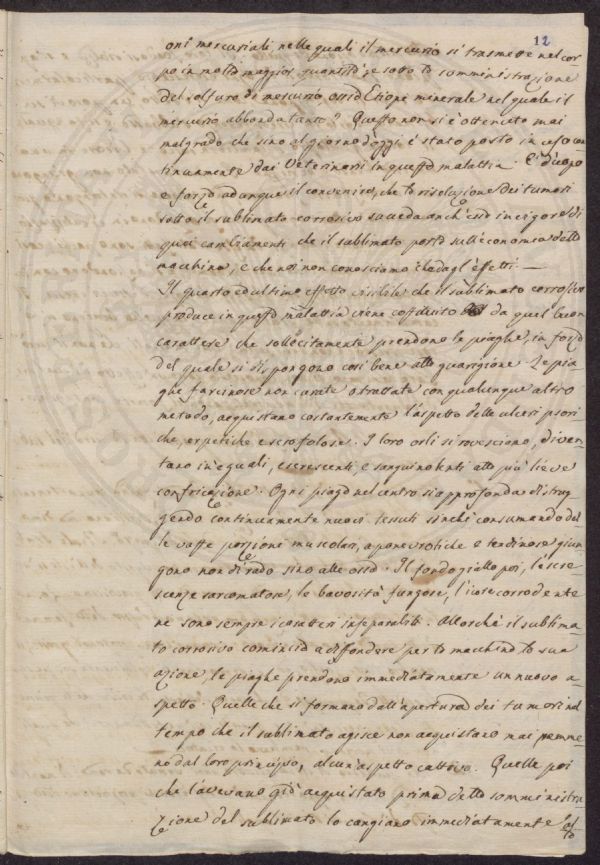 12
oni mercuriali, nelle quali il mercurio si trasmette nel cor
po in molto maggior quantità; e sotto la somministrazione
del solfuro di mercurio ossia Etiope minerale nel quale il
mercurio abbonda tanto? Questo non si è ottenuto mai
malgrado che sino al giorno d'oggi è stato posto in uso con
tinuamente dai Veterinarj in questa malattia. E' d'uopo
e forza adunque il convenire, che la risoluzione dei tumori
sotto il sublimato corrosivo succeda anch'essa in vigore di
quei cambiamenti che il sublimato porta sull'economia della
macchina, e che noi non conosciamo che dagl'effetti —
Il quarto ed ultimo effetto visibile che il sublimato corrosivo
produce in questa malattia viene costituito da quel buon
carattere che sollecitamente prendono le piaghe, in forza
del quale si dispongono così bene alla guarigione. Le pia
ghe farcinose non curate o trattate con qualunque altro
metodo, acquistano costantemente l'aspetto delle ulceri psori
che, erpetiche e scrofolose. I loro orli si rovesciano, diven
tano ineguali, escrescenti, e sanguinolenti alla più lieve
confricazione. Ogni piaga nel centro si approfonda distrug
gendo continuamente nuovi tessuti sinchè consumando del
le vaste porzioni muscolari, aponevrotiche e tendinose giun
gono non di rado sino alle ossa. Il fondo giallo poi, le scre
scenze sarcomatose, le bavosità fungose, l'icore corrodente
ne sono sempre i caratteri inseparabili. Allorchè il sublima
to corrosivo comincia a diffondere per la macchina la sua
azione, le piaghe prendono immediatamente un nuovo a
spetto. Quelle che si formano dall'apertura dei tumori nel
tempo che il sublimato agisce non acquistano mai nemme
no dal loro principio, alcun aspetto cattivo. Quelle poi
che l'avevano già acquistato prima della somministra
zione del sublimato lo cangiano immediatamente al